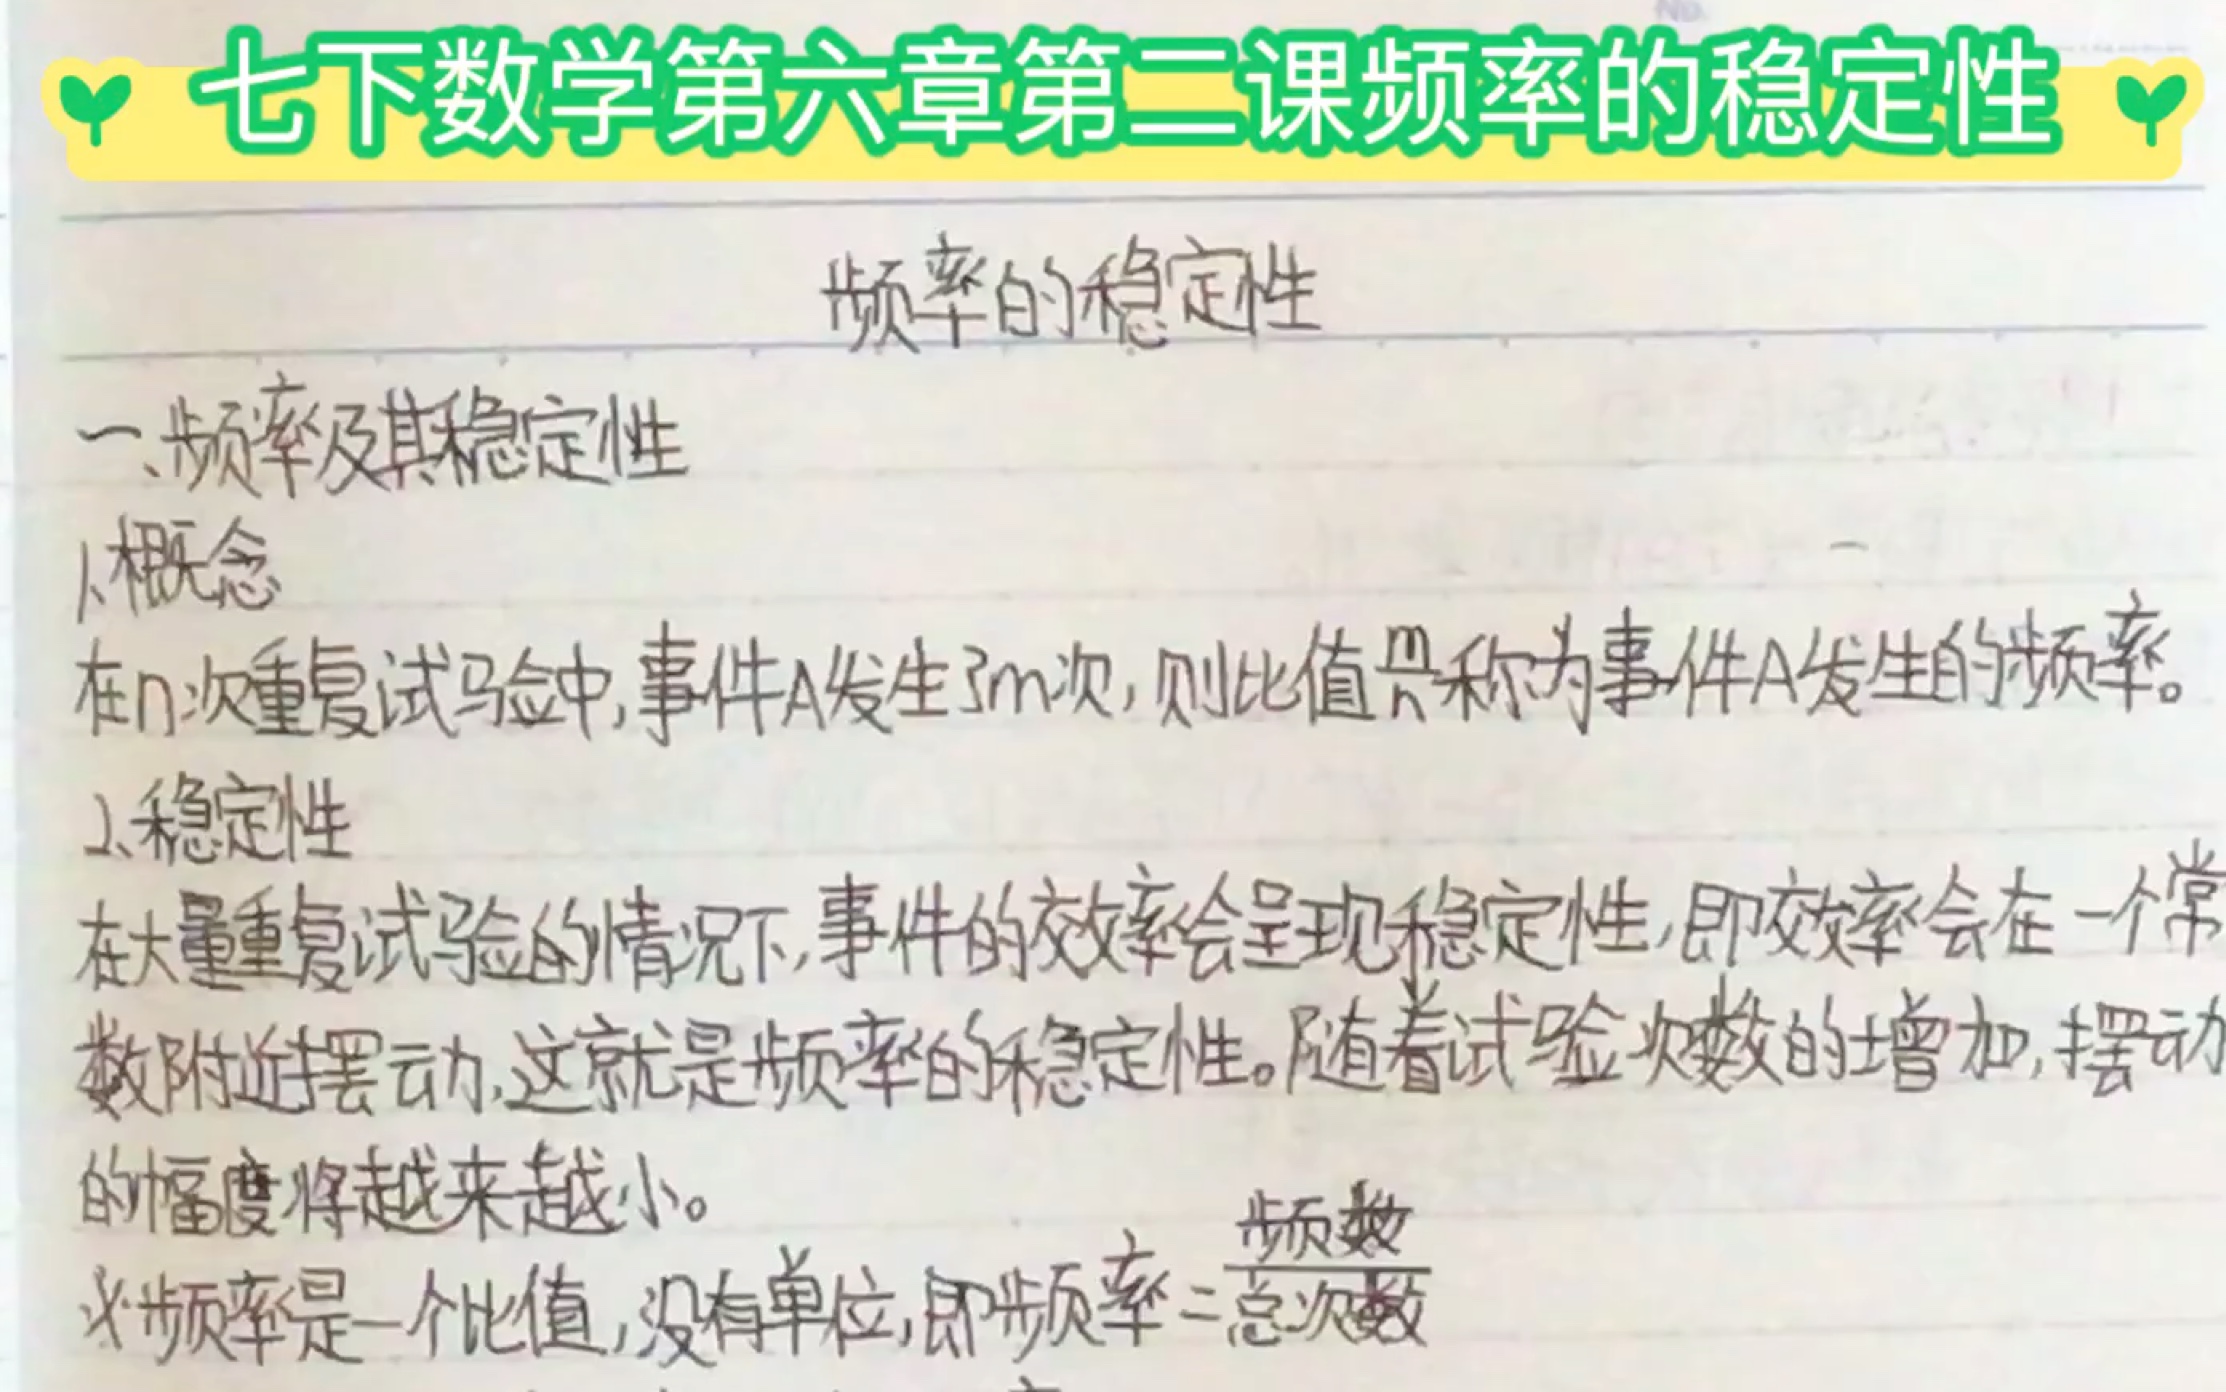 No.
七下数学第六章第二课频率的稳定性
频率的稳定性
一、频率及其稳定性
1、概念
在n次重复试验中,事件A发生了m次,则比值m/n称为事件A发生的频率。
2、稳定性
在大量重复试验的情况下,事件的效率会呈现稳定性,即效率会在一个常
数附近摆动,这就是频率的稳定性。随着试验次数的增加,摆动
的幅度将越来越小。
※频率是一个比值,没有单位,即频率=频数/总次数